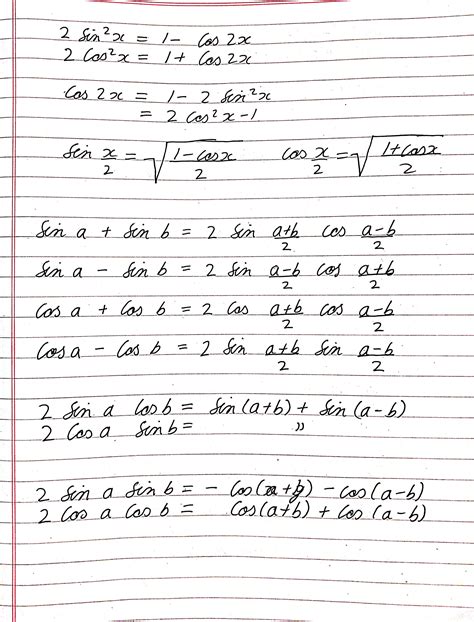 2 Sin²x = 1 - Cos 2x
2 Cos²x = 1 + Cos 2x
Cos 2x = 1 - 2 Sin²x
= 2 Cos²x - 1
Sin x/2 = √(1 - cosx / 2) cos x/2 = √(1 + cosx / 2)
Sin a + Sin b = 2 Sin a+b/2 cos a-b/2
Sin a - Sin b = 2 Sin a-b/2 cos a+b/2
Cos a + Cos b = 2 Cos a+b/2 cos a-b/2
Cos a - Cos b = 2 Sin a+b/2 Sin a-b/2
2 Sin a Cos b = Sin(a+b) + Sin(a-b)
2 Cos a Sin b = "
2 Sin a Sin b = - Cos(a+b) - cos(a-b)
2 Cos a Cos b = Cos(a+b) + Cos(a-b)